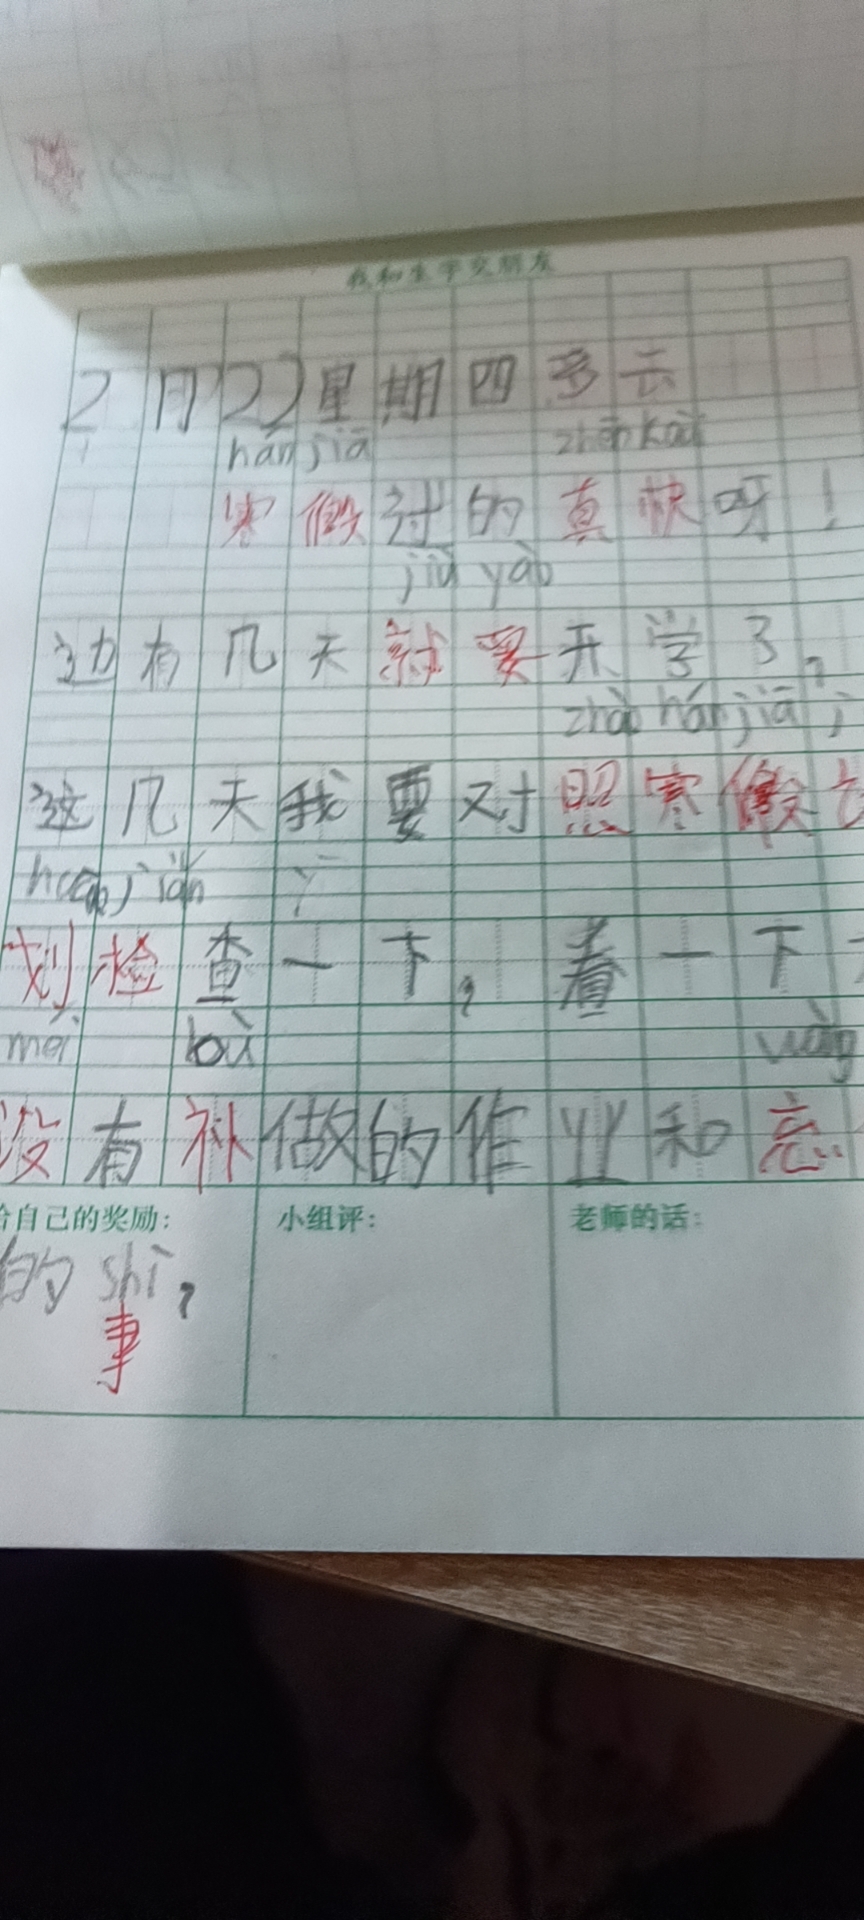 我和生字交朋友
2月22星期四多云
hán jià zhēn kuài
寒假过的真快呀！
jiù yào
边有几天就要开学了，
zhào hán jià j
这几天我要对照寒假
huà jiǎn
划检查一下，看一下
méi bǔ wàng
没有补做的作业和忘
给自己的奖励： 小组评： 老师的话：
的shì，
事